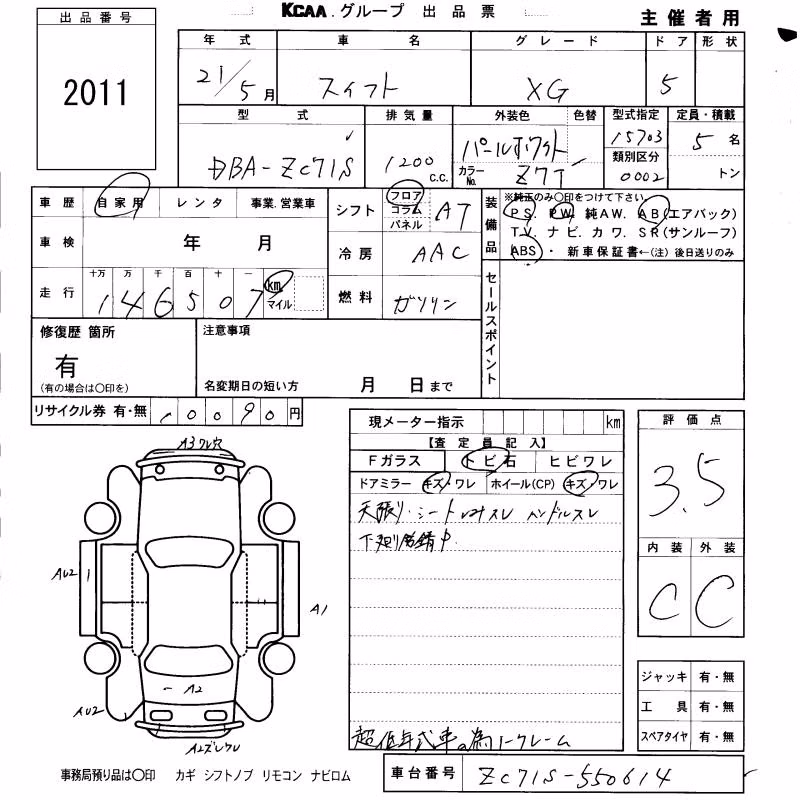 KCAA.グループ 出品票
主催者用
出品番号
2011
年式 車名 グレード ドア 形状
21/5月 スイフト XG 5
型式 排気量 外装色 色替 型式指定 定員・積載
DBA-ZC71S 1200c.c. パールホワイト 15703 5名
カラーNo. Z7T 類別区分 0002 トン
車歴 自家用 レンタ 事業.営業車
車検 年 月
走行 十万 万 千 百 十 一
146507 km マイル
シフト フロア コラム パネル AT
冷房 AAC
燃料 ガソリン
装備品 ※純正のみ〇印をつけて下さい
PS. PW. 純AW. AB(エアバック)
TV. ナビ. カワ. SR(サンルーフ)
ABS・ 新車保証書←(注)後日送りのみ
セールスポイント
修復歴 箇所
有
(有の場合は〇印を)
注意事項
名変期日の短い方 月 日まで
リサイクル券 有・無 10090円
現メーター指示 km
【査定員記入】
Fガラス トビ石 ヒビワレ
ドアミラー キズ・ワレ ホイール(CP) キズ・ワレ
天張り・シート シートスレ ハンドルスレ
下廻り錆中
超低年式車の為ノークレーム
評価点
3.5
内装 外装
C C
A3ワレ穴
AU2
A1
A2
AU2
A2ズレワレ
ジャッキ 有・無
工具 有・無
スペアタイヤ 有・無
事務局預り品は〇印 カギ シフトノブ リモコン ナビロム
車台番号 ZC71S-550614